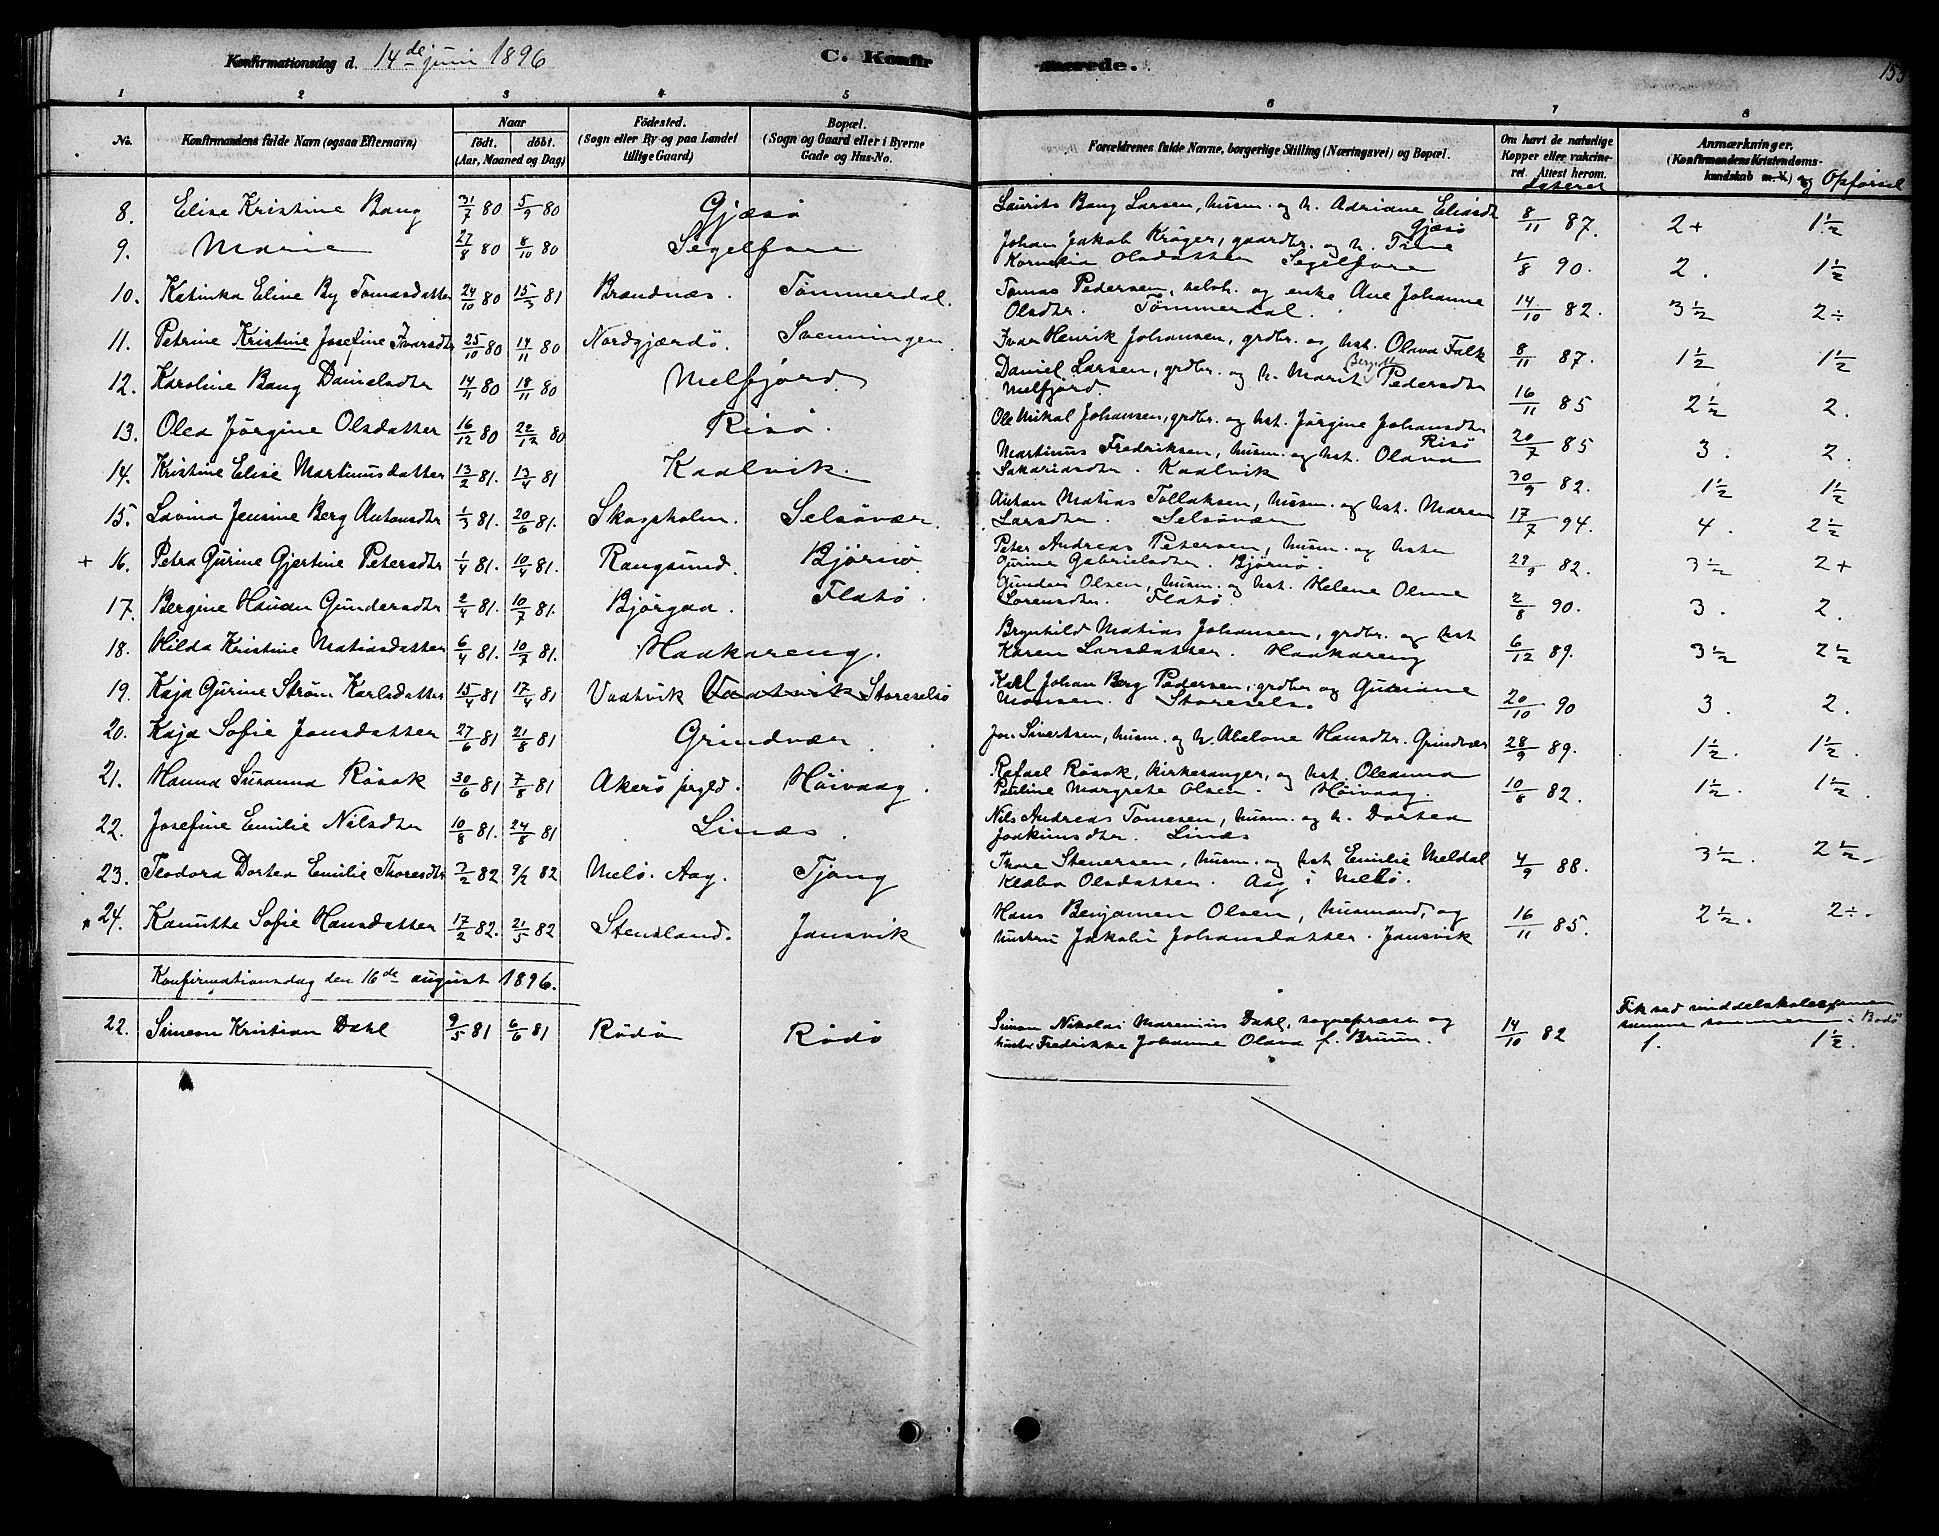 Konfirmationsdag d. 14de juni 1896 C. Konfirmerede. 153
1 2 3 4 5 6 7 8
No. Konfirmandens fulde Navn (ogsaa Efternavn) Naar født. døbt. (Aar, Maaned og Dag) Fødested. (Sogn eller By og paa Landet tillige Gaard) Bopæl. (Sogn og Gaard eller i Byerne Gade og Hus-No. Forældrenes fulde Navne, borgerlige Stilling (Næringsvei) og Bopæl. Om havt de naturlige Kopper eller vakcineret. Attest herom. Anmærkninger. (Konfirmandens Kristendomskundskab m. V.) og Opførsel
8. Elise Kristine Bang 31/7 80 5/9 80 Gjæsø Laurits Bang Larsen, husm. og h. Adriane Eliasdt Gjæsø 8/11 87. 2+ 1½
9. Marie 27/8 80 8/10 80 Segelfore Johan Jakob Krøger, gaardbr. og h. Trine Kornelia Olsdatter Segelfore 1/8 90. 2. 1½
10. Katinka Eline By Tomasdatter 24/10 80 15/3 81 Brændnæs. Tømmerdal. Tomas Pedersen, selvh. og enke Ane Johanne Olsdtr. Tømmerdal. 14/10 82. 3½ 2÷
11. Petrine Kristine Josefine Ivarsdtr 25/10 80 14/11 80 Nordgjærdø. Svenningen. Ivar Henrik Johansen, grdbr. og hst. Olava Falk 8/11 87. 1½ 1½
12. Karoline Bang Danielsdtr 14/11 80 18/11 80 Melfjord. Daniel Larsen, grdbr. og h. Marit Bergitte Pedersdtr Melfjord. 16/11 85 2½ 2.
13. Olea Jørgine Olsdatter 16/12 80 22/12 80 Risø. Ole Mikal Johansen, grdbr. og hst. Jørgine Johansdtr Risø 20/7 85 3. 2.
14. Kristine Elise Martinusdatter 13/2 81. 13/4 81 Kaalvik. Martinus Fredriksen, husm. og hst. Olava Sakariasdtr. Kaalvik 30/9 82. 1½ 1½
15. Lavina Jensine Berg Antonsdtr 1/3 81. 20/6 81. Skogsholm. Selsøvær. Anton Matias Tollaksen, husm. og hst. Maren Larsdtr. Selsøvær 17/7 94. 4. 2½
+ 16. Petra Gurine Gjertine Petersdtr 1/4 81. 10/4 81. Rangsund. Bjørnø. Peter Andreas Petersen, husm. og hstr Gurine Gabrielsdtr. Bjørnø. 29/9 82. 3½ 2+
17. Bergine Hauan Gundersdtr 2/4 81. 10/7 81. Bjørgaa. Flatø. Gunder Olsen, husm. og hst. Helene Oline Sørensdtr. Flatø. 2/8 90. 3. 2.
18. Hilda Kristine Matiasdatter 6/4 81. 10/7 81. Haakareng. Brynhild Matias Johansen, grdbr. og hst Karen Larsdatter. Haakareng 6/12 89. 3½ 2½
19. Kaja Gurine Strøm Karlsdatter 15/4 81 17/4 81 Vaatvik Vaatvik Storeselsø Karl Johan Berg Pedersen, grdbr og Guriane Monsen. Storesels. 20/10 90 3. 2.
20. Kaja Sofie Jonsdatter 27/6 81 21/8 81 Grindvær. Jon Sivertsen, husm. og h. Abelone Hansdtr. Grindvær 28/9 89. 1½. 1½.
21. Hanna Susanna Røsok 30/6 81 7/8 81 Akerø prgld. Høivaag. Rafael Røsok, kirkesanger, og hst. Oleanna Pauline Margrete Olsen. Høivaag. 10/8 82. 1½. 1½.
22. Josefine Emilie Nilsdtr 10/8 81. 24/8 81 Linæs. Nils Andreas Tomesen, husm. og h. Dortea Joakimsdtr. Linæs
23. Teodora Dortea Emilie Thoresdtr 3/2 82 9/2 82 Melø. Aag. Tjong Thore Stenersen, husm. og hst Emilie Meldal Klæbo Olsdatter. Aag i Melø. 4/9 88. 3½. 2½.
24. Kanutte Sofie Hansdatter 17/2 82. 21/5 82 Stensland. Jansvik Hans Benjamen Olsen, husmand, og hustru Jakobi Johansdatter. Jansvik 16/11 85. 2½. 2÷.
Konfirmationsdag den 16de august 1896.
22. Simeon Kristian Dahl 9/5 81 6/6 81 Rødø Rødø Simon Nikolai Marenius Dahl, sogneprest og hustr. Fredrikke Johanne Olava f. Bruun. 14/10 82 Fik ved middelskolexamen samme sommeren i Bodø 1. 1½.